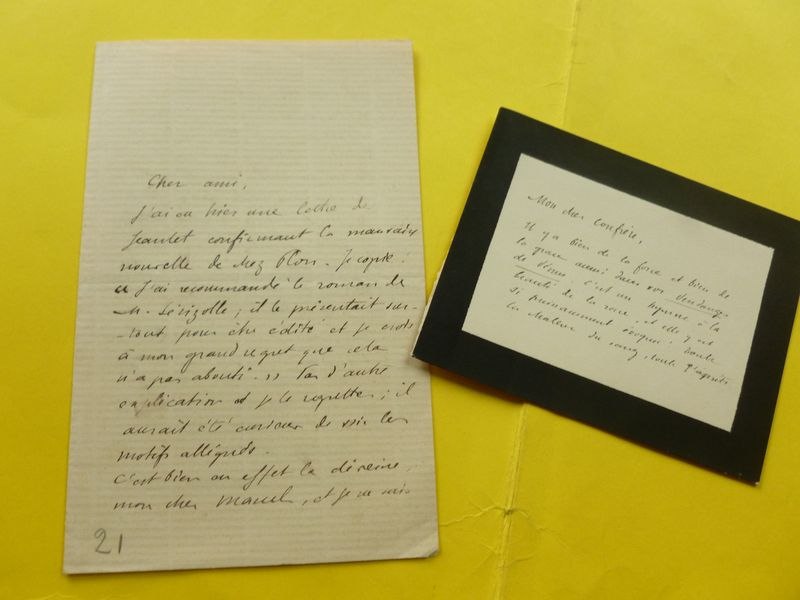 Cher ami,
J'ai eu hier une lettre de
Jeantet confirmant la mauvaise
nouvelle de chez Plon. Je copie :
« J'ai recommandé le roman de
M. ; il le présentait sur-
-tout pour être édité et je crois
à mon grand regret que cela
n'a pas abouti. » Pas d'autre
explication et je le regrette ; il
aurait été curieux de voir les
motifs allégués.
C'est bien en effet la déveine,
mon cher Marcel, et je ne sais
21
Mon cher confrère,
Il y a bien de la force et bien de
la grace aussi dans vos Vendanges
de Vénus. C'est un hymne à la
beauté de la race, et elle y est
si puissamment évoquée ! Toute
la chaleur du sang, toute